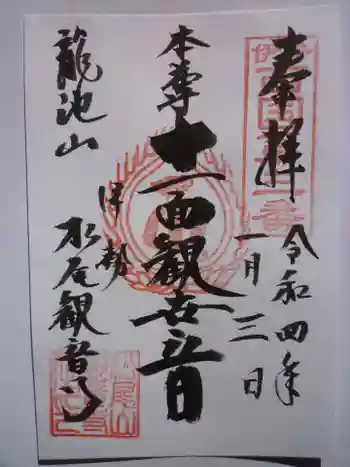 奉拝
令和四年
一月三日
本尊
十一面観世音
伊勢
水尾観音寺
龍池山